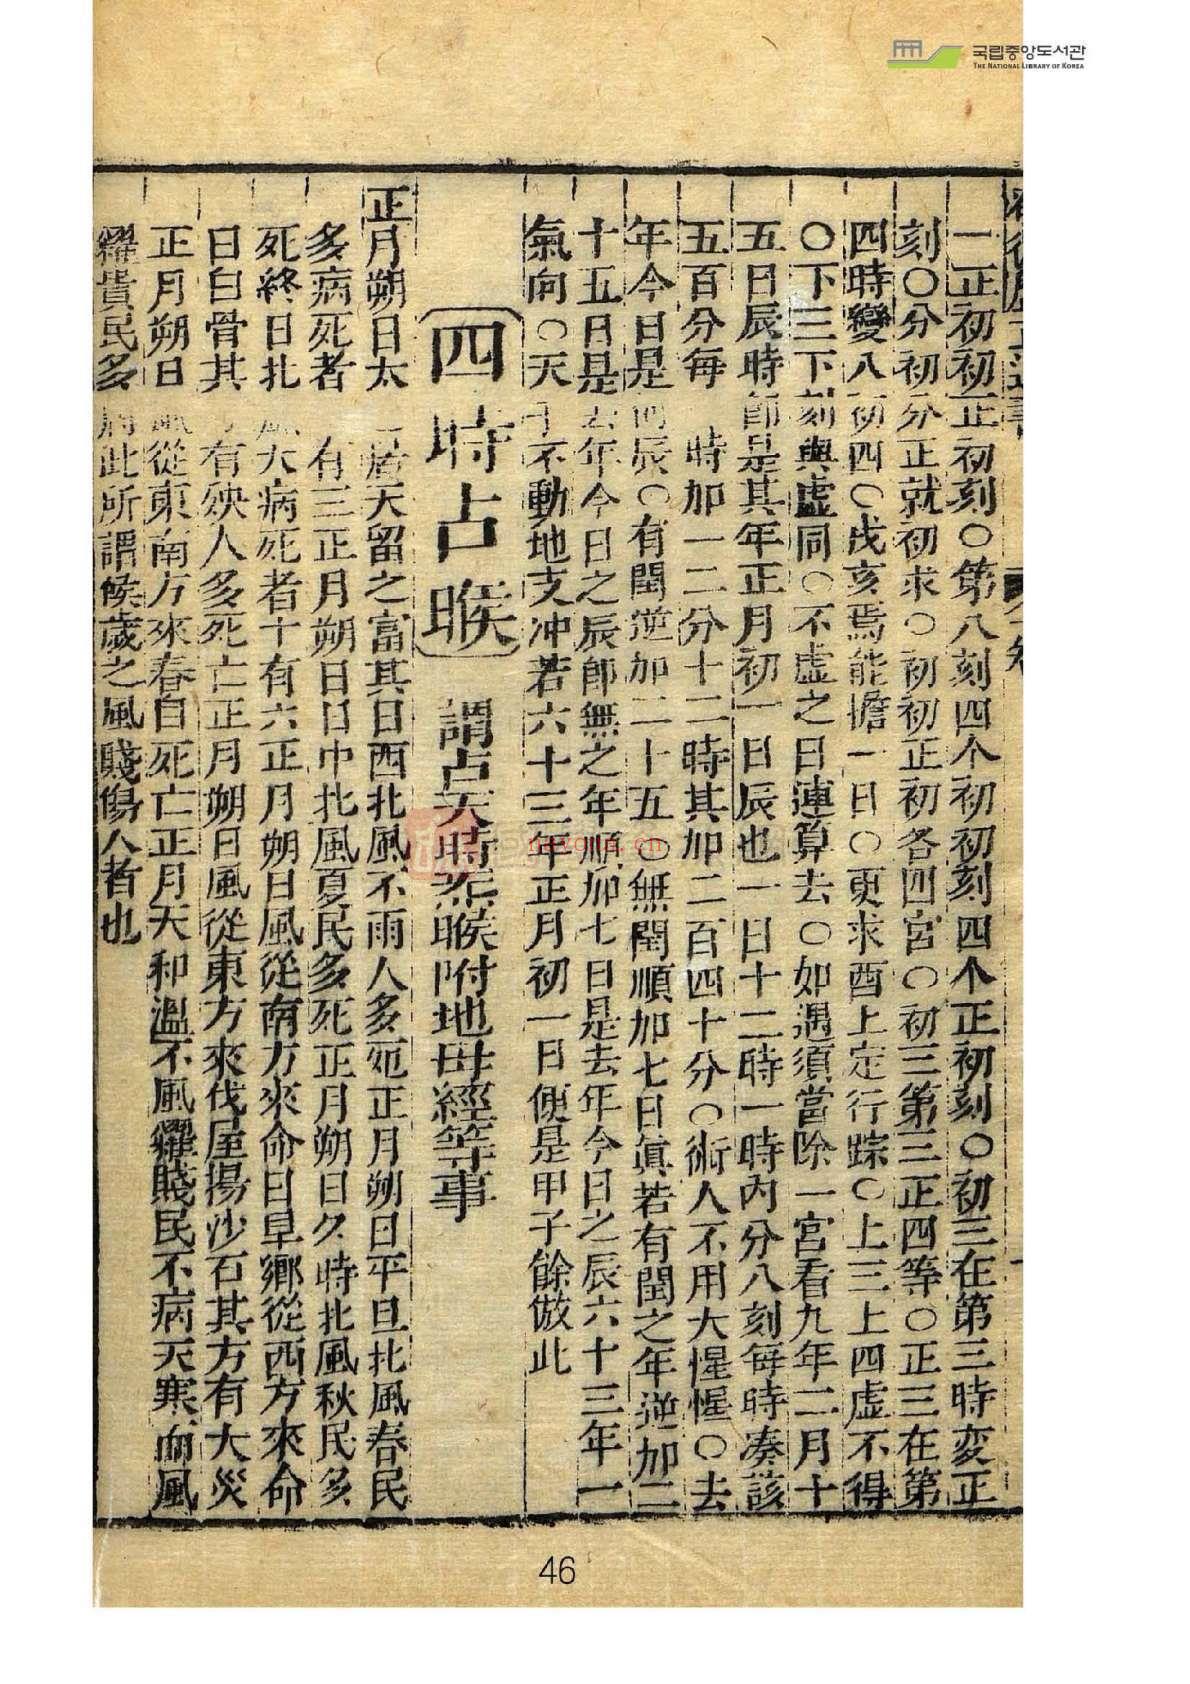 국립중앙도서관
THE NATIONAL LIBRARY OF KOREA
一正初初正初刻〇第八刻四个初初刻四个正初刻〇初三在第三時変正
刻〇分初初分正就初求〇初初正初各四宮〇初三第三正四等〇正三在第
四時變八初四〇戌亥焉能擔一日〇更求酉上定行踪〇上三上四虛不得
〇下三下刻與虛同〇不虛之日連算去〇如遇須當除一宮看九年二月十
五日辰時節是其年正月初一日辰也一日十二時一時內分八刻每時凑該
五百分每 時加一二分十二時其加二百四十分〇術人不用大惺惺〇去
年今日是何辰〇有閏逆加二十五〇無閏順加七日眞若有閏之年逆加二
十五日是去年今日之辰節無之年順加七日是去年今日之辰六十三年一
氣向〇天干不動地支冲若六十三年正月初一日便是甲子餘倣此
四時占睺 謂占天時炁睺附地母經等事
正月朔日太一居天留之富其日西北風不雨人多死正月朔日平旦北風春民
多病死者 有三正月朔日日中北風夏民多死正月朔日久時北風秋民多
死終日北風大病死者十有六正月朔日風從南方來命曰旱鄉從西方來命
曰白骨其 有殃人多死亡正月朔日風從東方來伐屋揚沙石其方有大災
正月朔日風從東南方來春自死亡正月天和溫不風糴賤民不病天寒而風
糴貴民多病此所謂候歲之風賤傷人者也
nayona.cn
46